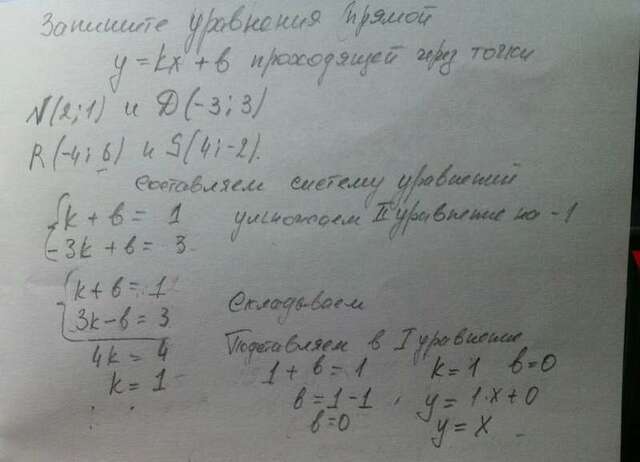 Запишите уравнения прямой
y = kx + в проходящей через точки
N(2;1) и D(-3;3)
R(-4;6) и S(4;-2).
Составляем систему уравнений
k + в = 1 умножаем II уравнение на -1
-3k + в = 3
k + в = 1
3k - в = 3 Складываем
4k = 4 Подставляем в I уравнение
k = 1 1 + в = 1 k = 1 в = 0
в = 1 - 1 y = 1·x + 0
в = 0 y = x